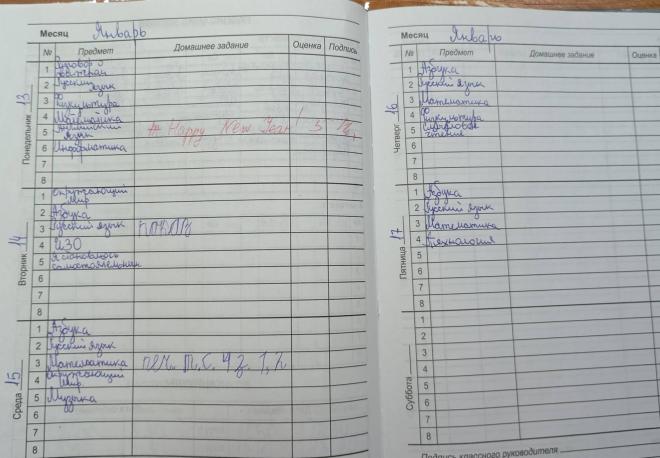 Месяц Январь
№ Предмет Домашнее задание Оценка Подпись
Понедельник 13
1 Разговор о важном
2 Русский язык
3 Физкультура
4 Математика
5 Английский язык Happy New Year! 5
6 Информатика
7
8
Вторник 14
1 Окружающий мир
2 Азбука
3 Русский язык
4 ИЗО
5 Я становлюсь самостоятельным
6
7
8
Среда 15
1 Азбука
2 Русский язык
3 Математика т.с. 4 з. 1,2
4 Окружающий мир
5 Музыка
6
7
8
Месяц Январь
№ Предмет Домашнее задание Оценка
Четверг 16
1 Азбука
2 Русский язык
3 Математика
4 Физкультура
5 Смысловое чтение
6
7
8
Пятница 17
1 Азбука
2 Русский язык
3 Математика
4 Технология
5
6
7
8
Суббота
1
2
3
4
5
6
7
8
Подпись классного руководителя